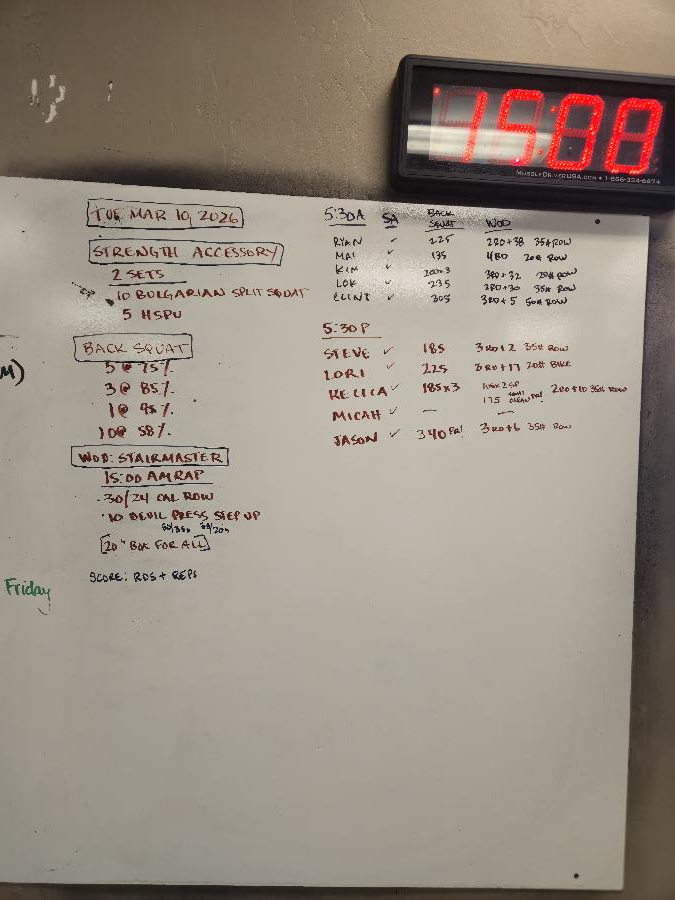 15:00
MUSCLEDRIVERUSA.COM • 1-866-
TUE MAR 10, 2026
STRENGTH ACCESSORY
2 SETS
10 BULGARIAN SPLIT SQUAT
5 HSPU
BACK SQUAT
5 @ 75%
3 @ 85%
1 @ 95%
10 @ 58%
WOD: STAIRMASTER
15:00 AMRAP
30/24 CAL ROW
10 DEVIL PRESS STEP UP
50/35s 35/20s
[20" BOX FOR ALL]
SCORE: RDS + REPS
M)
Friday
5:30A SA BACK SQUAT WOD
RYAN ✓ 225 2RD+38 35# ROW
MAI ✓ 135 4RD 20# ROW
KIM ✓ 200x3 3RD+32 20# ROW
LOK ✓ 235 2RD+30 35# ROW
CLINT ✓ 305 3RD+5 50# ROW
5:30P
STEVE ✓ 185 3RD+2 35# ROW
LORI ✓ 225 3RD+17 20# BIKE
✓ 185x3 2RD+10 35# ROW
175 CLEAN PR!
MICAH ✓ — —
JASON ✓ 340 PR! 3RD+6 35# ROW